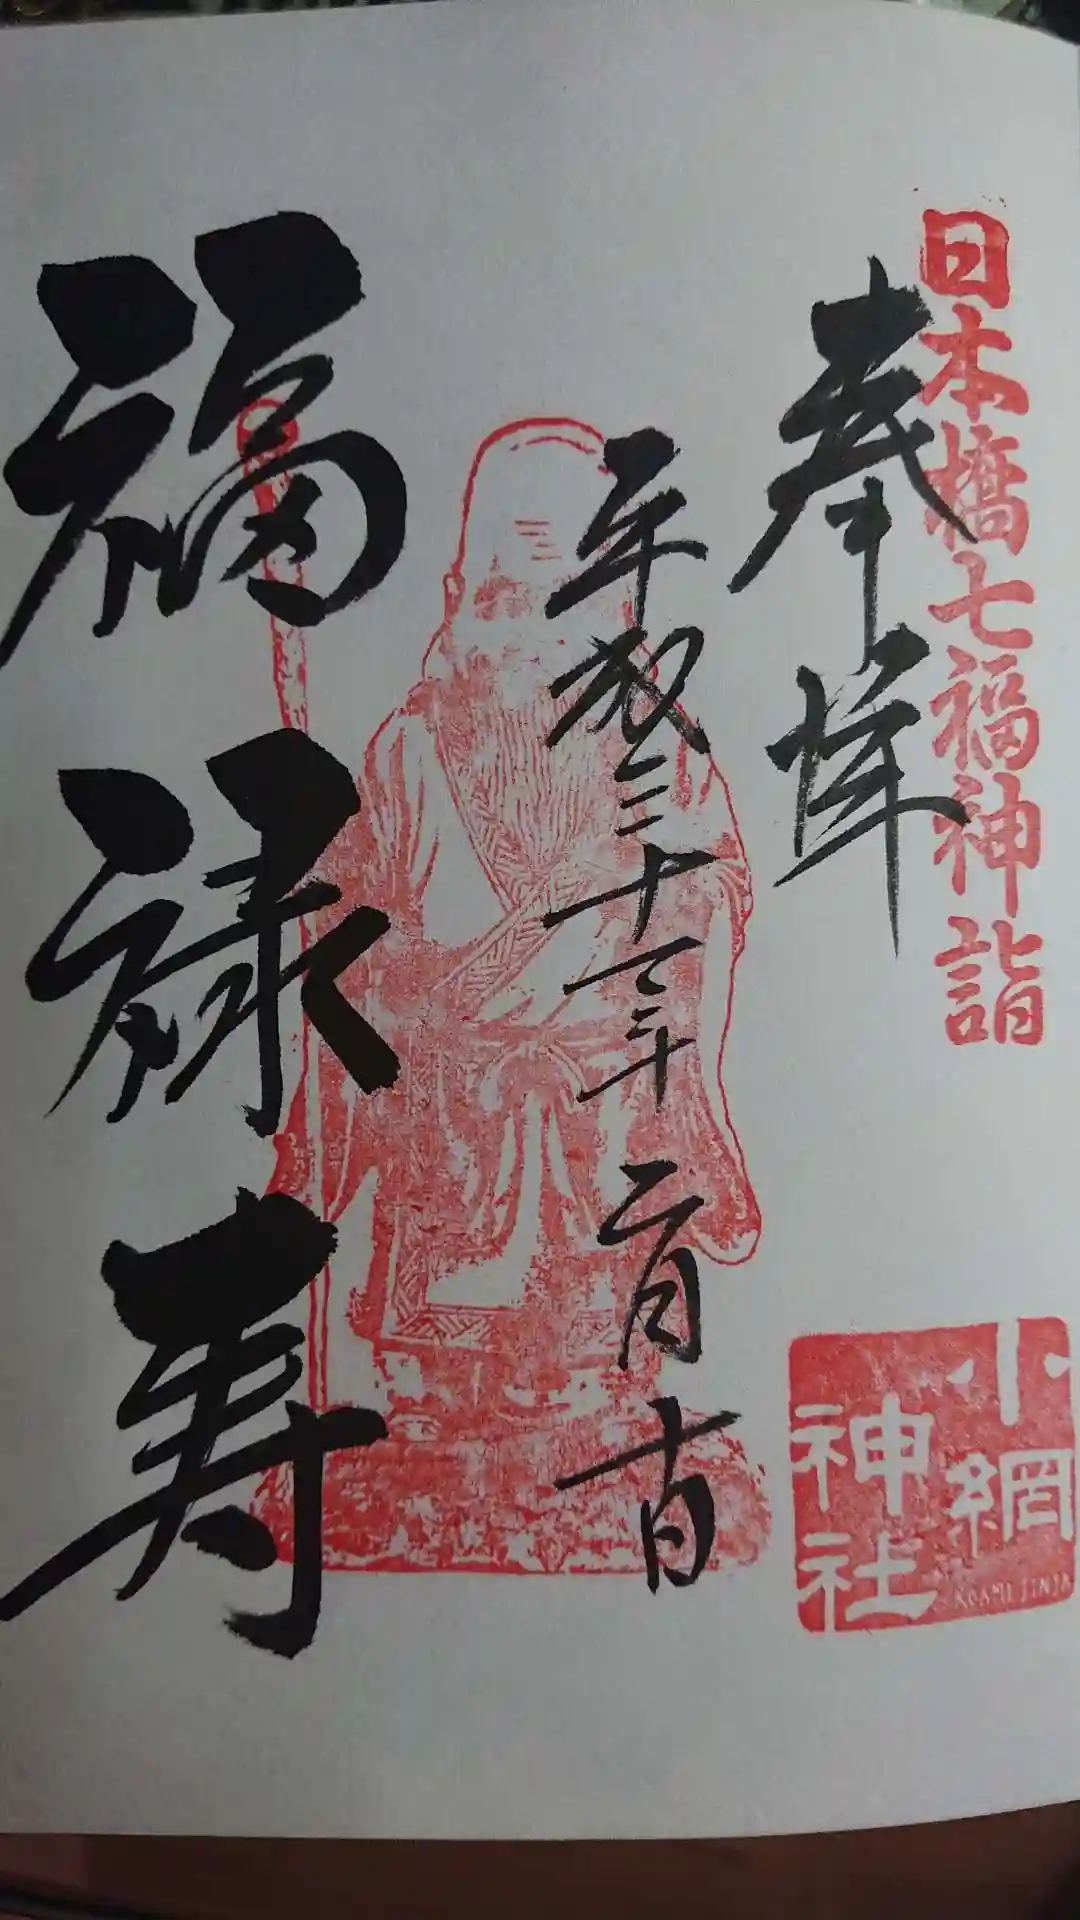 日本橋七福神詣
奉拝
平成三十一年 二月
福禄寿
小網
神社
KOAMI JINJA